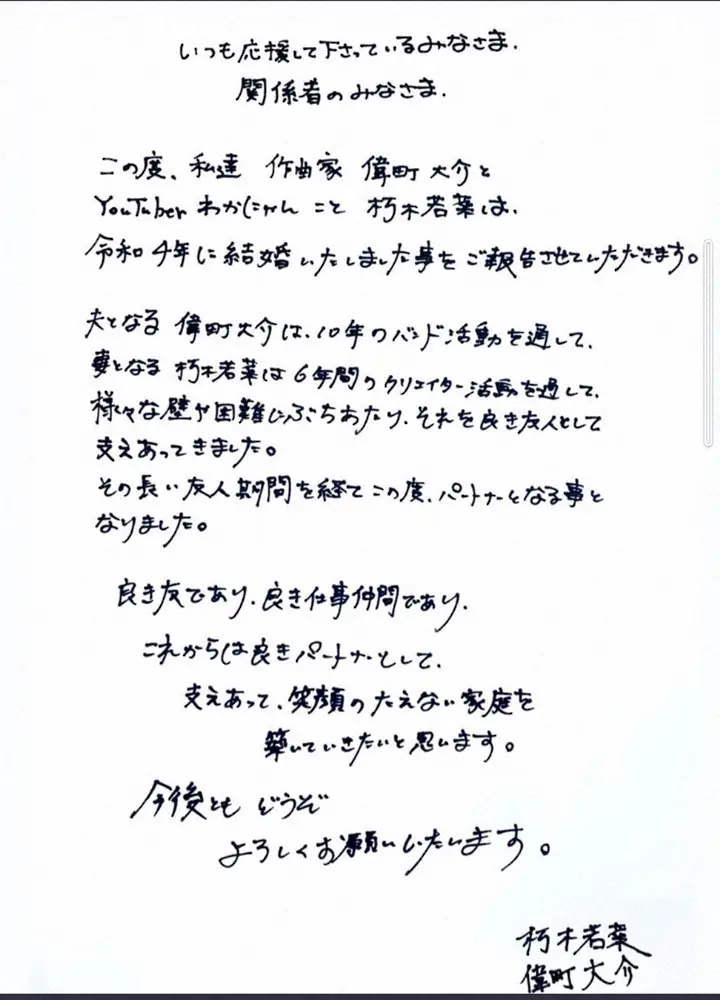 いつも応援して下さっているみなさま.
関係者のみなさま.
この度、私達 作曲家 偉町大介と
YouTuber わかにゃん こと 朽木若葉は、
令和4年に結婚いたしました事をご報告させていただきます。
夫となる 偉町大介は、10年のバンド活動を通して、
妻となる 朽木若葉は6年間のクリエイター活動を通して、
様々な壁や困難にぶちあたり、それを良き友人として
支えあってきました。
その長い友人期間を経てこの度、パートナーとなる事と
なりました。
良き友であり、良き仕事仲間であり、
これからは良きパートナーとして、
支えあって、笑顔のたえない家庭を
築いていきたいと思います。
今後とも どうぞ
よろしくお願いいたします。
朽木若葉
偉町大介